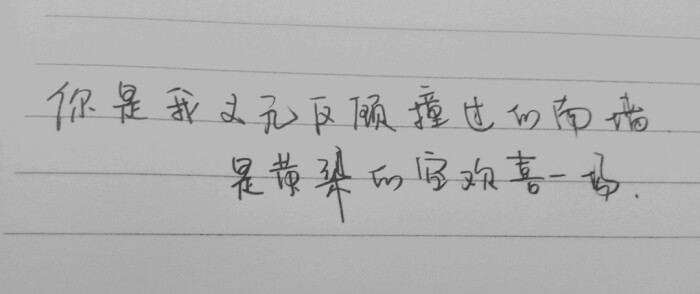 你是我义无反顾撞过的南墙
是黄粱的空欢喜一场.